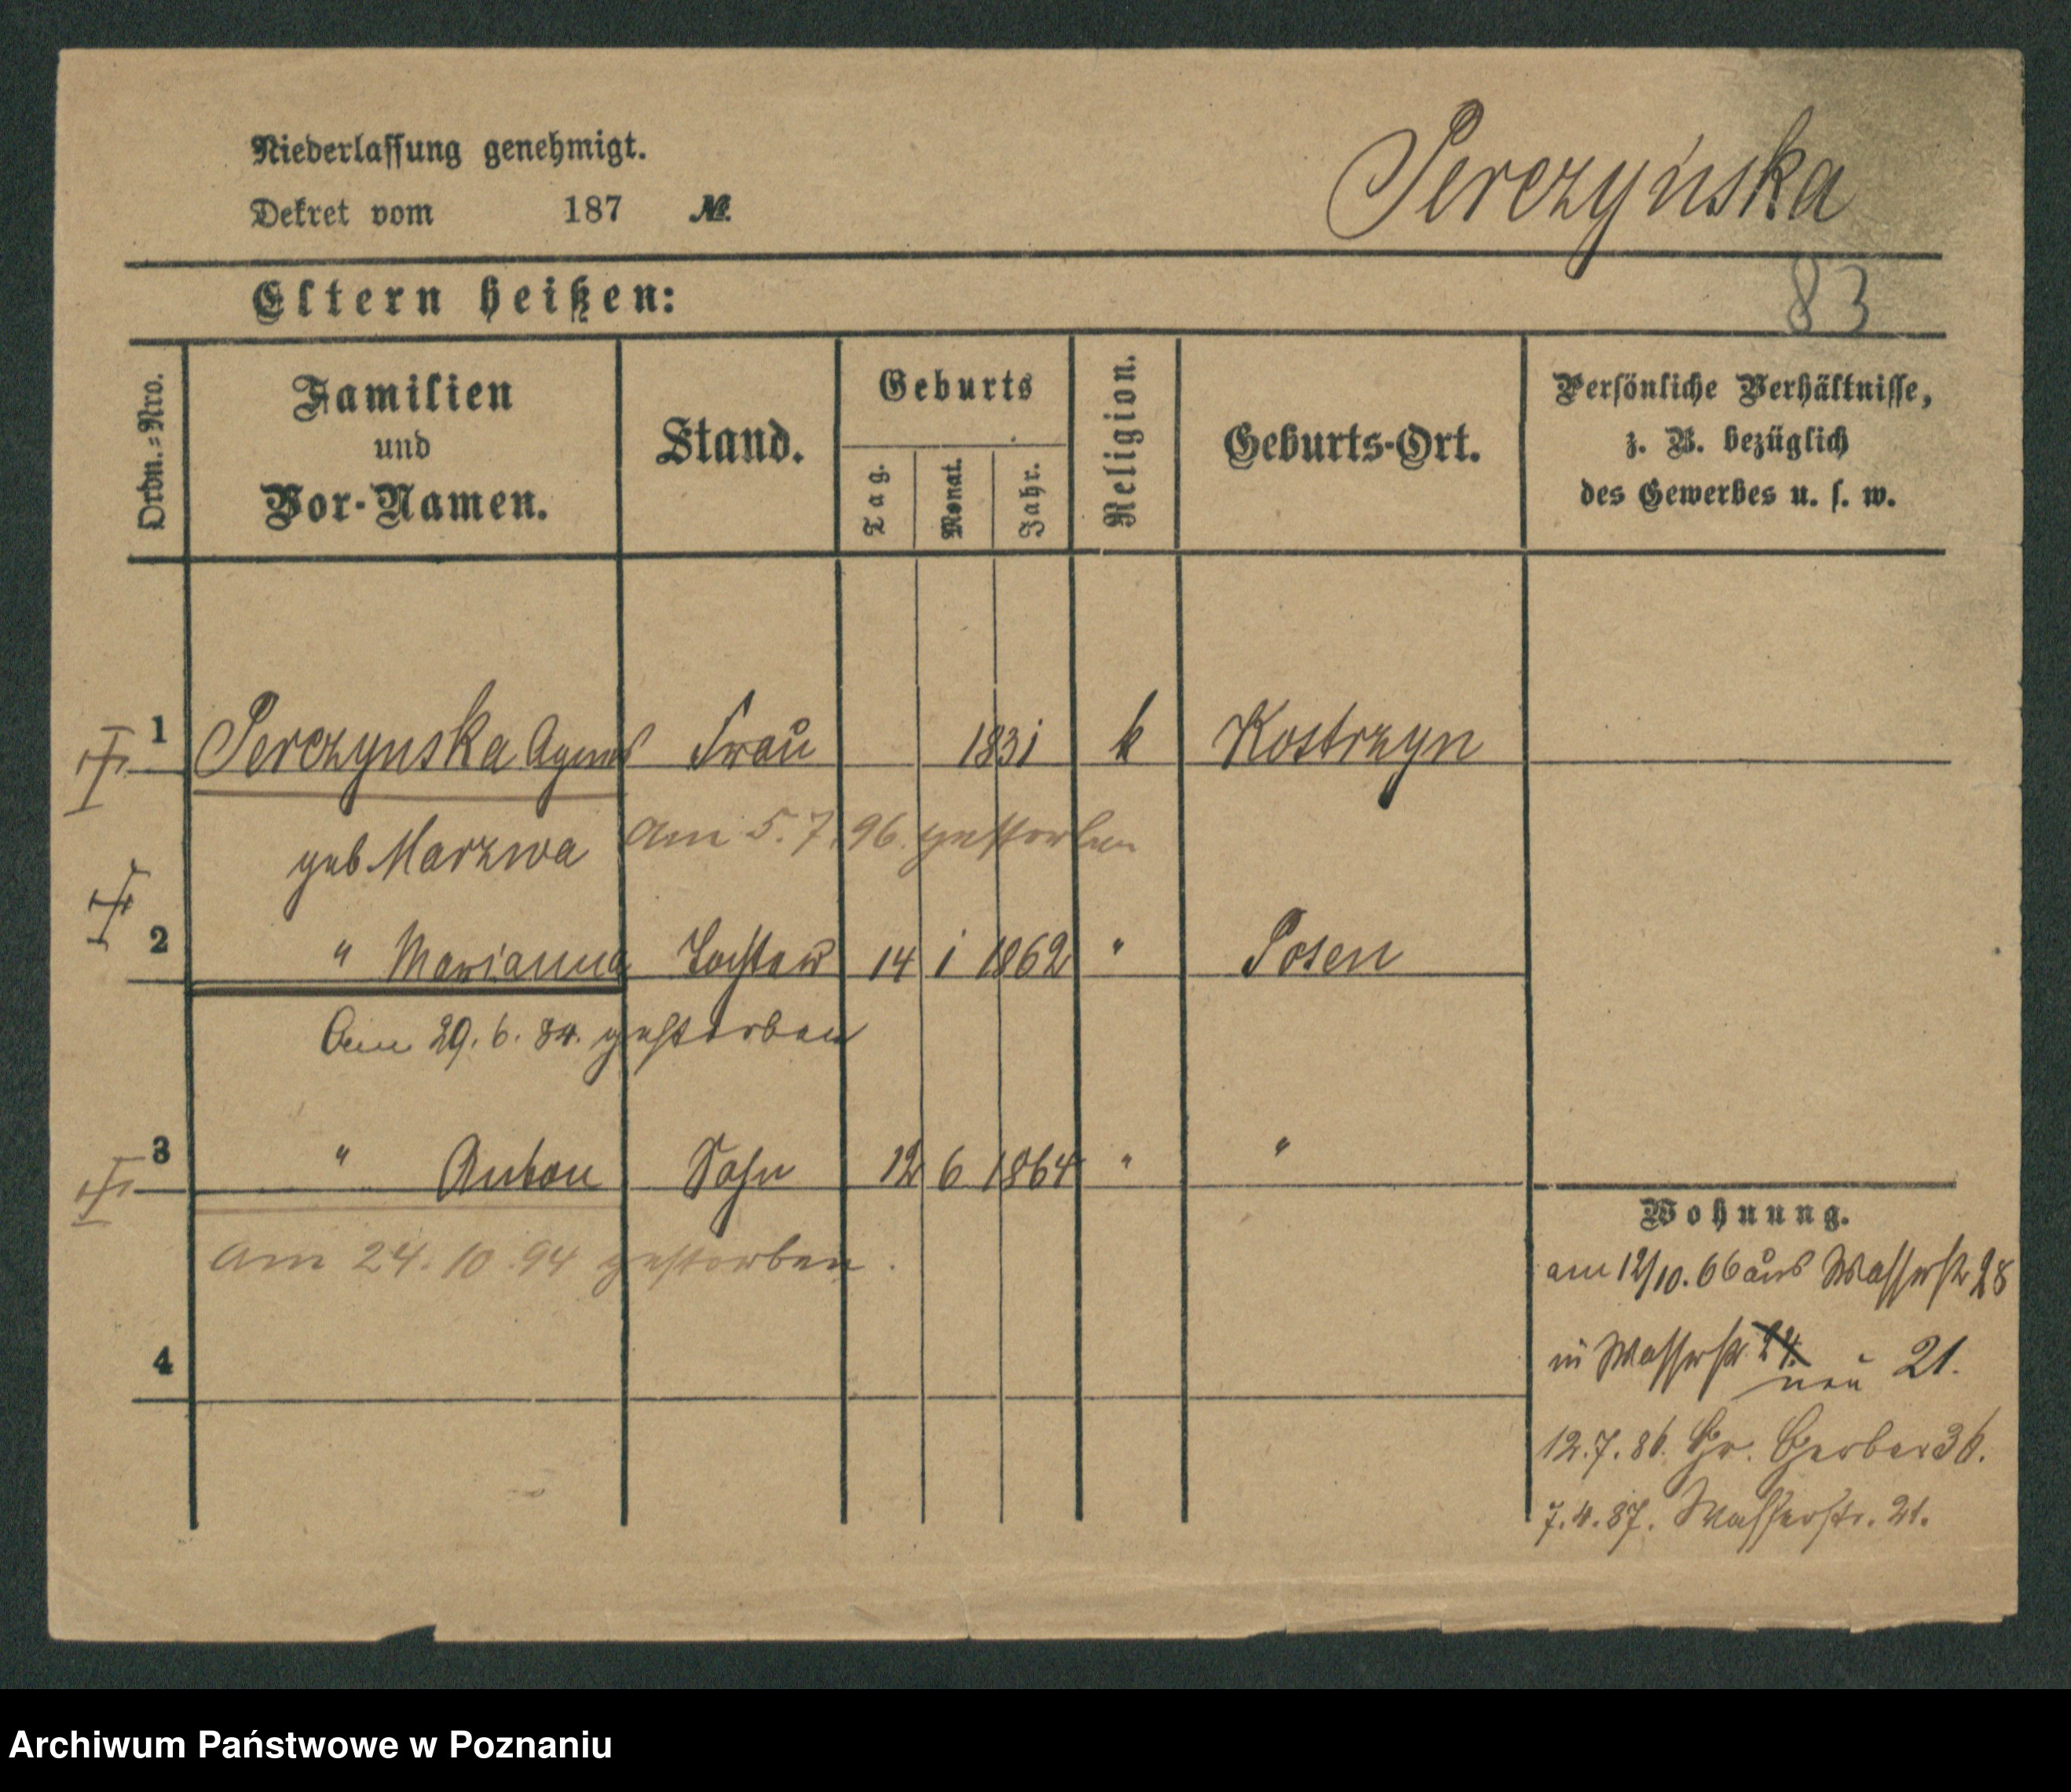 Niederlassung genehmigt.
Dekret vom 187 №
Perczyńska
83
Eltern heißen:
Ordn.=Nro.
Familien
und
Vor-Namen.
Stand.
Geburts
Tag.
Monat.
Jahr.
Religion.
Geburts-Ort.
Persönliche Verhältnisse,
z. B. bezüglich
des Gewerbes u. s. w.
1 Perczynska Agnes Frau 1831 k Kostrzyn
geb Marzwa am 5.7.96. gestorben
2 " Marianna Tochter 14 1 1862 " Posen
Am 29.6.84. gestorben
3 " Anton Sohn 12 6 1864 " "
am 24.10.94 gestorben.
4
Wohnung.
am 12/10.66 aus Wasserstr 28
in Wasserstr. 24. neu 21.
12.7.86. Gr. Gerber 36.
7.4.87. Wasserstr. 21.
Archiwum Państwowe w Poznaniu